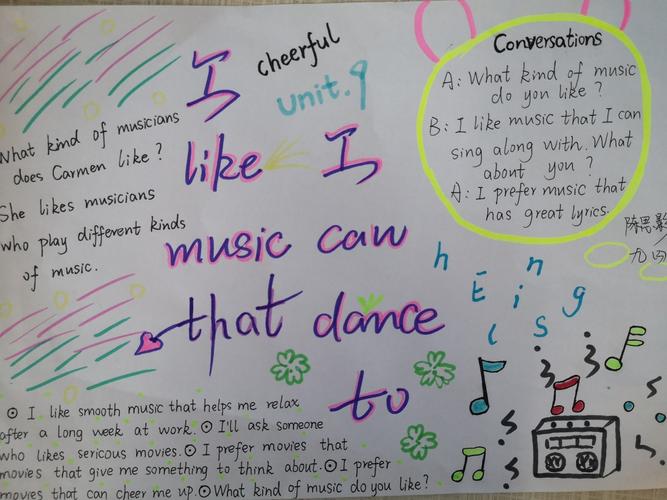 cheerful
unit.9
I
like I
music can
that dance
to
What kind of musicians
does Carmen like?
She likes musicians
who play different kinds
of music.
Conversations
A: What kind of music
do you like?
B: I like music that I can
sing along with. What
about you?
A: I prefer music that
has great lyrics.
h n
E i g
l S
⊙ I like smooth music that helps me relax
after a long week at work. ⊙ I'll ask someone
who likes sericous movies. ⊙ I prefer movies that
movies that give me something to think about. ⊙ I prefer
movies that can cheer me up. ⊙ What kind of music do you like?